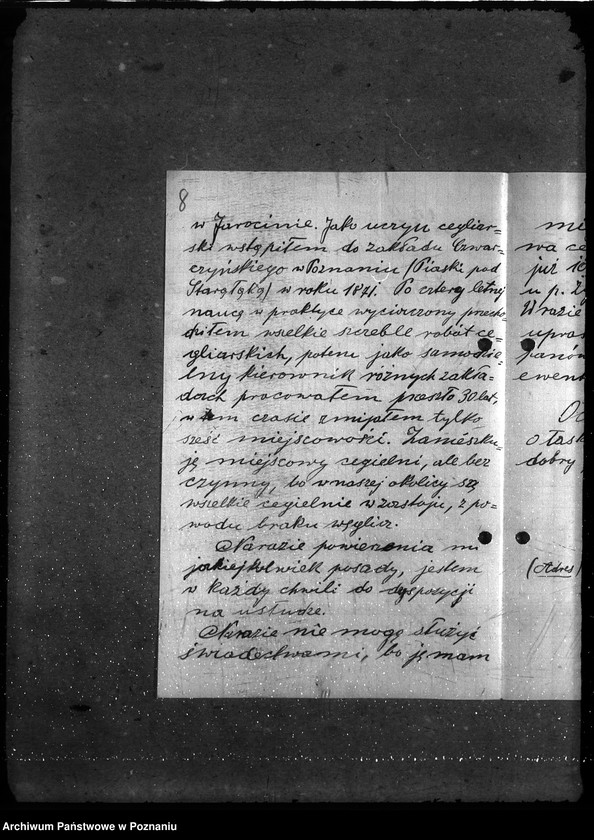 8
w Jarocinie. Jako uczyn cegliar=
ski wstąpiłem do zakładu Czwar=
czyńskiego w Poznaniu (Piaski pod
Starąłąką) w roku 1871. Po cztery letnij
naucę w praktyce wyciorczony przecho=
dziłem wselkie szczeble robót ce=
gliarskich, potem jako samodzie=
lny kierownik różnych zakła=
dach pracowałem preszło 30 lat,
w tem czasie zmijałem tylko
sześć miejscowości. Zamieszku=
ję miejscowy cegielni, ale bez
czynny, bo w naszej okolicy są
wszelkie cegielnie w zastoju, z po=
wodu braku węgliz.
Narazie powierzenia mi
jakiejkolwiek posady, jestem
w każdy chwili do dyspozycji
na usłudze.
Narazie nie mogę służyć
świadectwami, bo ję mam
mi
wa ce
już
u p.
W razie
upras
panów
ewent
o łask
dobry
(Adres)
Archiwum Państwowe w Poznaniu